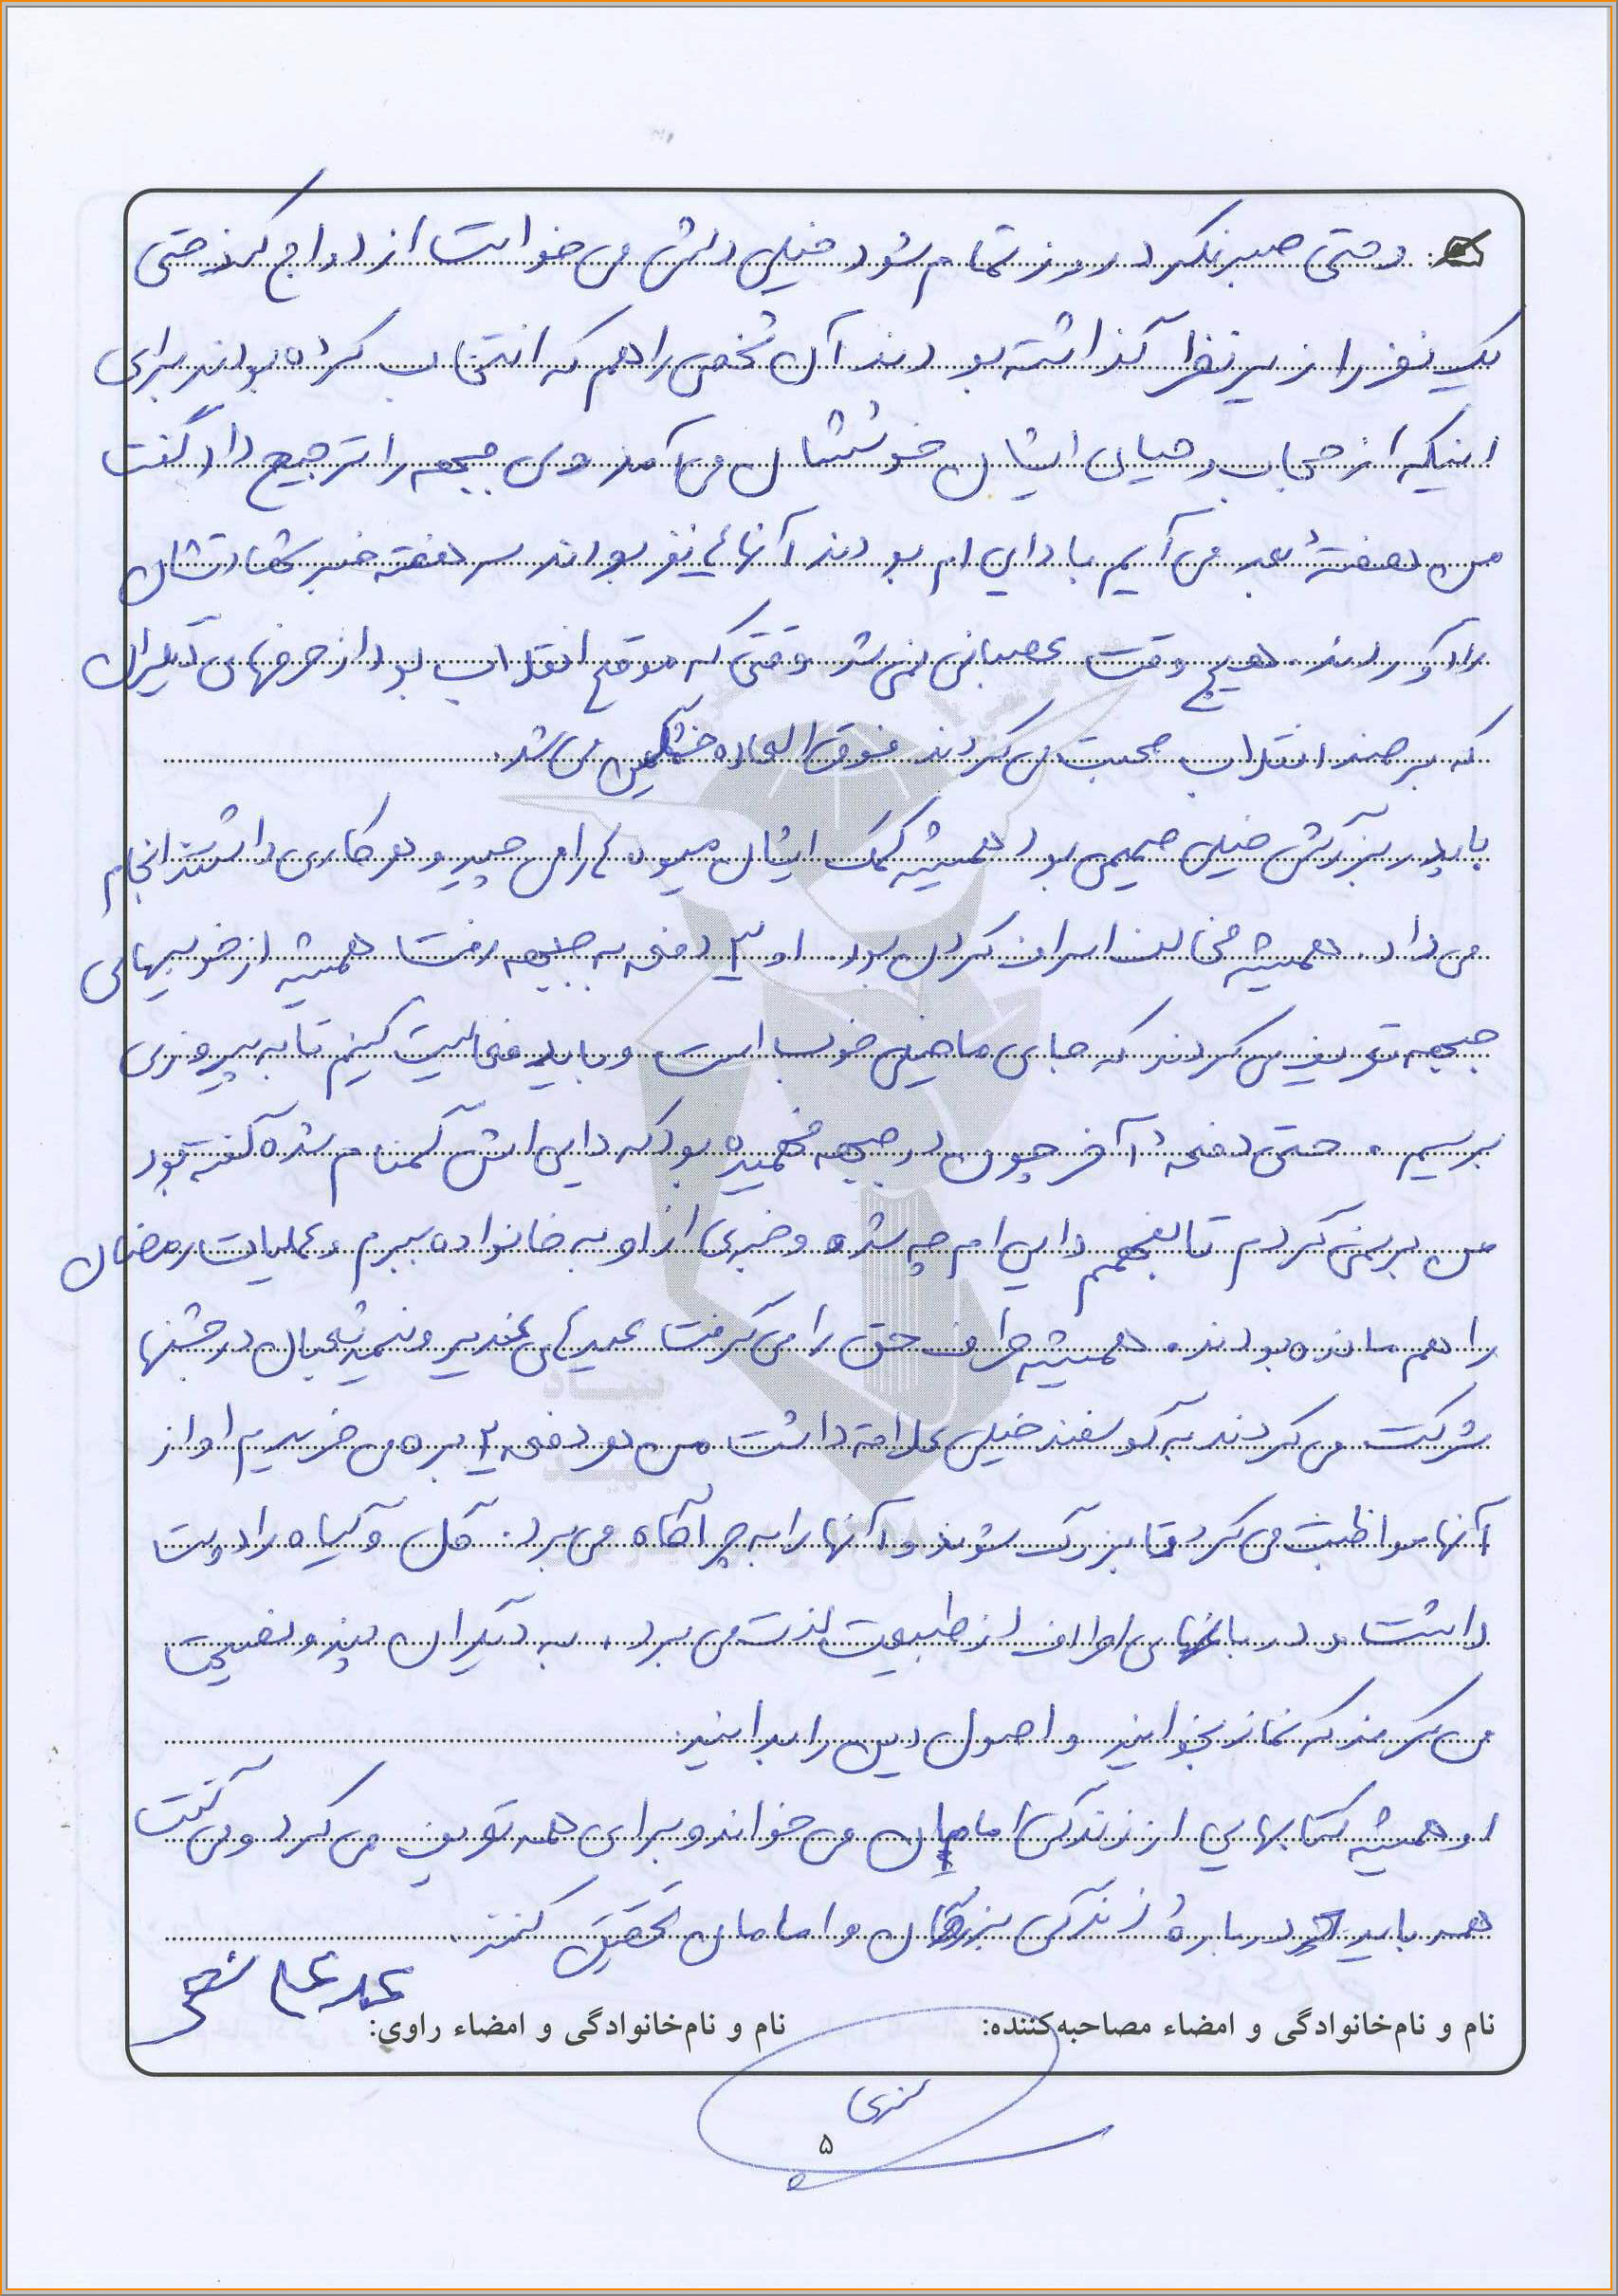 و حتی صبر نکرد روز تمام شود خیلی دلش می خواست ازدواج کند حتی
یک نفر را زیر نظر گذاشته بودند آن شخص را هم که انتخاب کرده بودند برای
اینکه از حجاب و حیای ایشان خوششان می آمد ولی جبهه را ترجیح داد گفت
من هفتهٔ بعد می آیم با دایی ام بودند آنها ۴ نفر بودند سر هفته خبر شهادتشان
را آوردند. هیچ وقت عصبانی نمی شد وقتی که موقع انقلاب بود از حرفهای دیگران
که بر ضد انقلاب صحبت می کردند فوق العاده خشمگین می شد.
با پدر بزرگش خیلی صمیمی بود همیشه کمک ایشان میوه ها را می چید و هر کاری داشتند انجام
می داد. همیشه مخالف اسراف کردن بود. او ۳ دفعه به جبهه رفت همیشه از خوبیهای
جبهه تعریف می کردند که جای ما خیلی خوب است و باید فعالیت کنیم تا به پیروزی
برسیم. حتی دفعهٔ آخر چون در جبهه فهمیده بود که دایی اش گمنام شده گفته بود
من بر نمی گردم تا بفهمم دایی ام چه شده و خبری از او به خانواده ببرم و عملیات رمضان
را هم مانده بودند. همیشه طرف حق را می گرفت عیدهای غدیر و نیمه شعبان در جشنها
شرکت می کردند به گوسفند خیلی علاقه داشت من هر دفعه ۲ بره می خریدم او از
آنها مواظبت می کرد تا بزرگ شوند و آنها را به چراگاه می برد. گل و گیاه را دوست
داشت و در باغهای اطراف از طبیعت لذت می برد. به دیگران پند و نصیحت
می کردند که نماز بخوانید و اصول دین را بدانید.
او همیشه کتابهایی از زندگی امامان می خواند و برای همه تعریف می کرد و می گفت
همه باید دربارهٔ زندگی بزرگان و امامان تحقیق کنند.
نام و نام‌خانوادگی و امضاء مصاحبه‌کننده: نام و نام‌خانوادگی و امضاء راوی:
۵